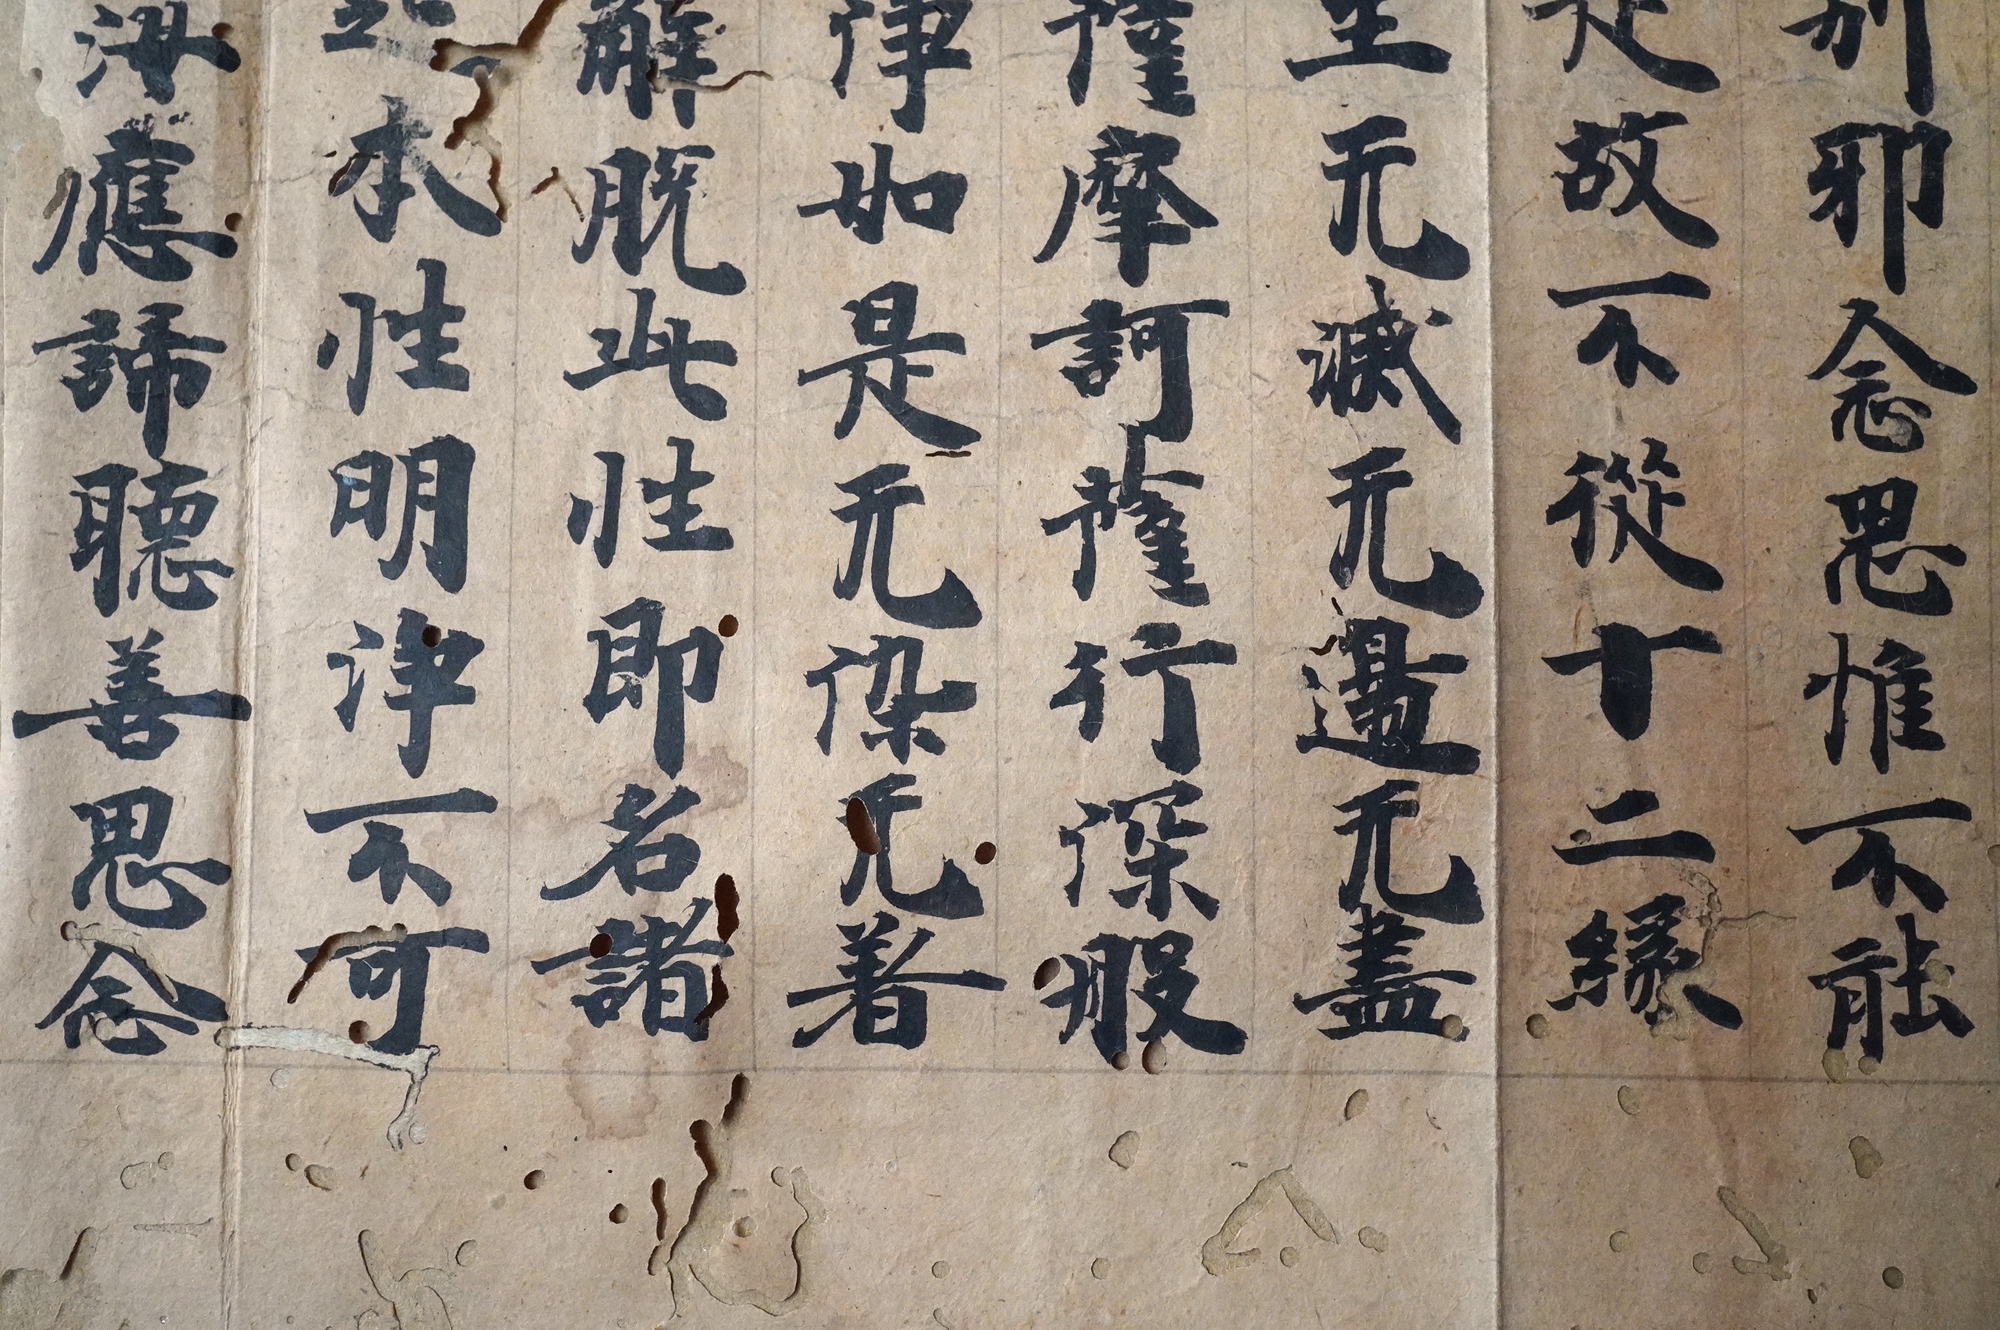 別邪念思惟不能
是故不從十二緣
生无滅无邊无盡
薩摩訶薩行深般
净如是无染无著
解脫此性即名諸
本性明净不可
汝應諦聽善思念